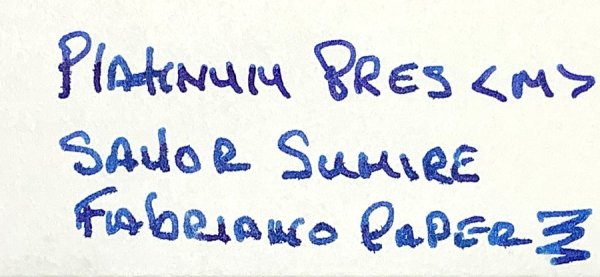 Platinum Pres <M>
Sailor Sumire
Fabriano Paper